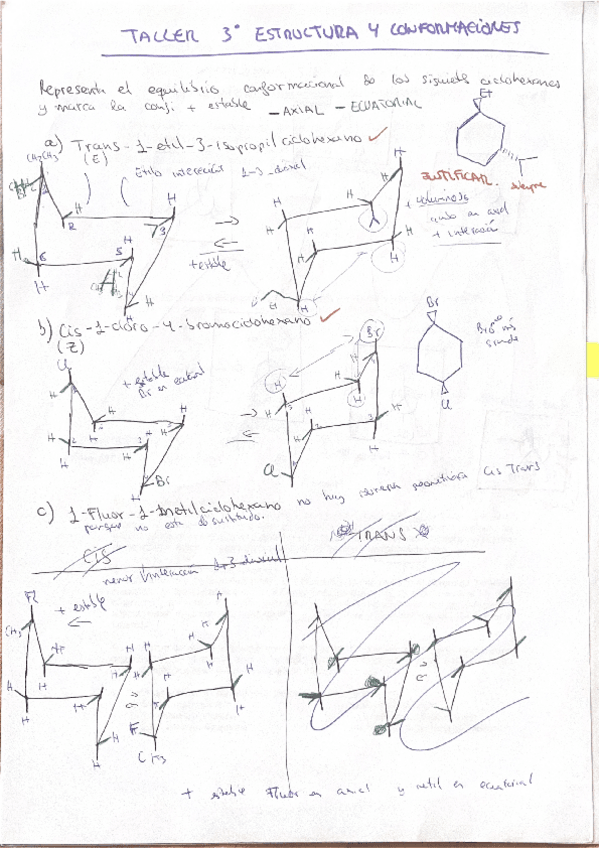 TALLER 3° ESTRUCTURA Y CONFORMACIONES
Representa el equilibrio conformacional de los siguientes ciclohexanos
y marca la conf. + estable - AXIAL - ECUATORIAL
a) Trans-1-etil-3-isopropilciclohexano
(E)
Et
CH2CH3
Etilo interacción 1-3-diaxial
JUSTIFICAR. siempre
+ voluminoso
en axial
+ interacción
+ estable
H
H
H
2
3
6
5
H
H
H
H
H
H
b) Cis-1-cloro-4-bromociclohexano
(Z)
Br
Br más
grande
Cl
Cl
+ estable
Br en
Br
H
H
H
H
H
H
Br
Cl
c) 1-Fluor-1-metilciclohexano no hay isomería geométrica cis trans
porque no está disustituido.
CIS
TRANS
menor interacción 1-3 diaxial
Fl
+ estable
CH3
H
H
H
H
H
H
F
CH3
+ estable Fluor en axial y metil en ecuatorial